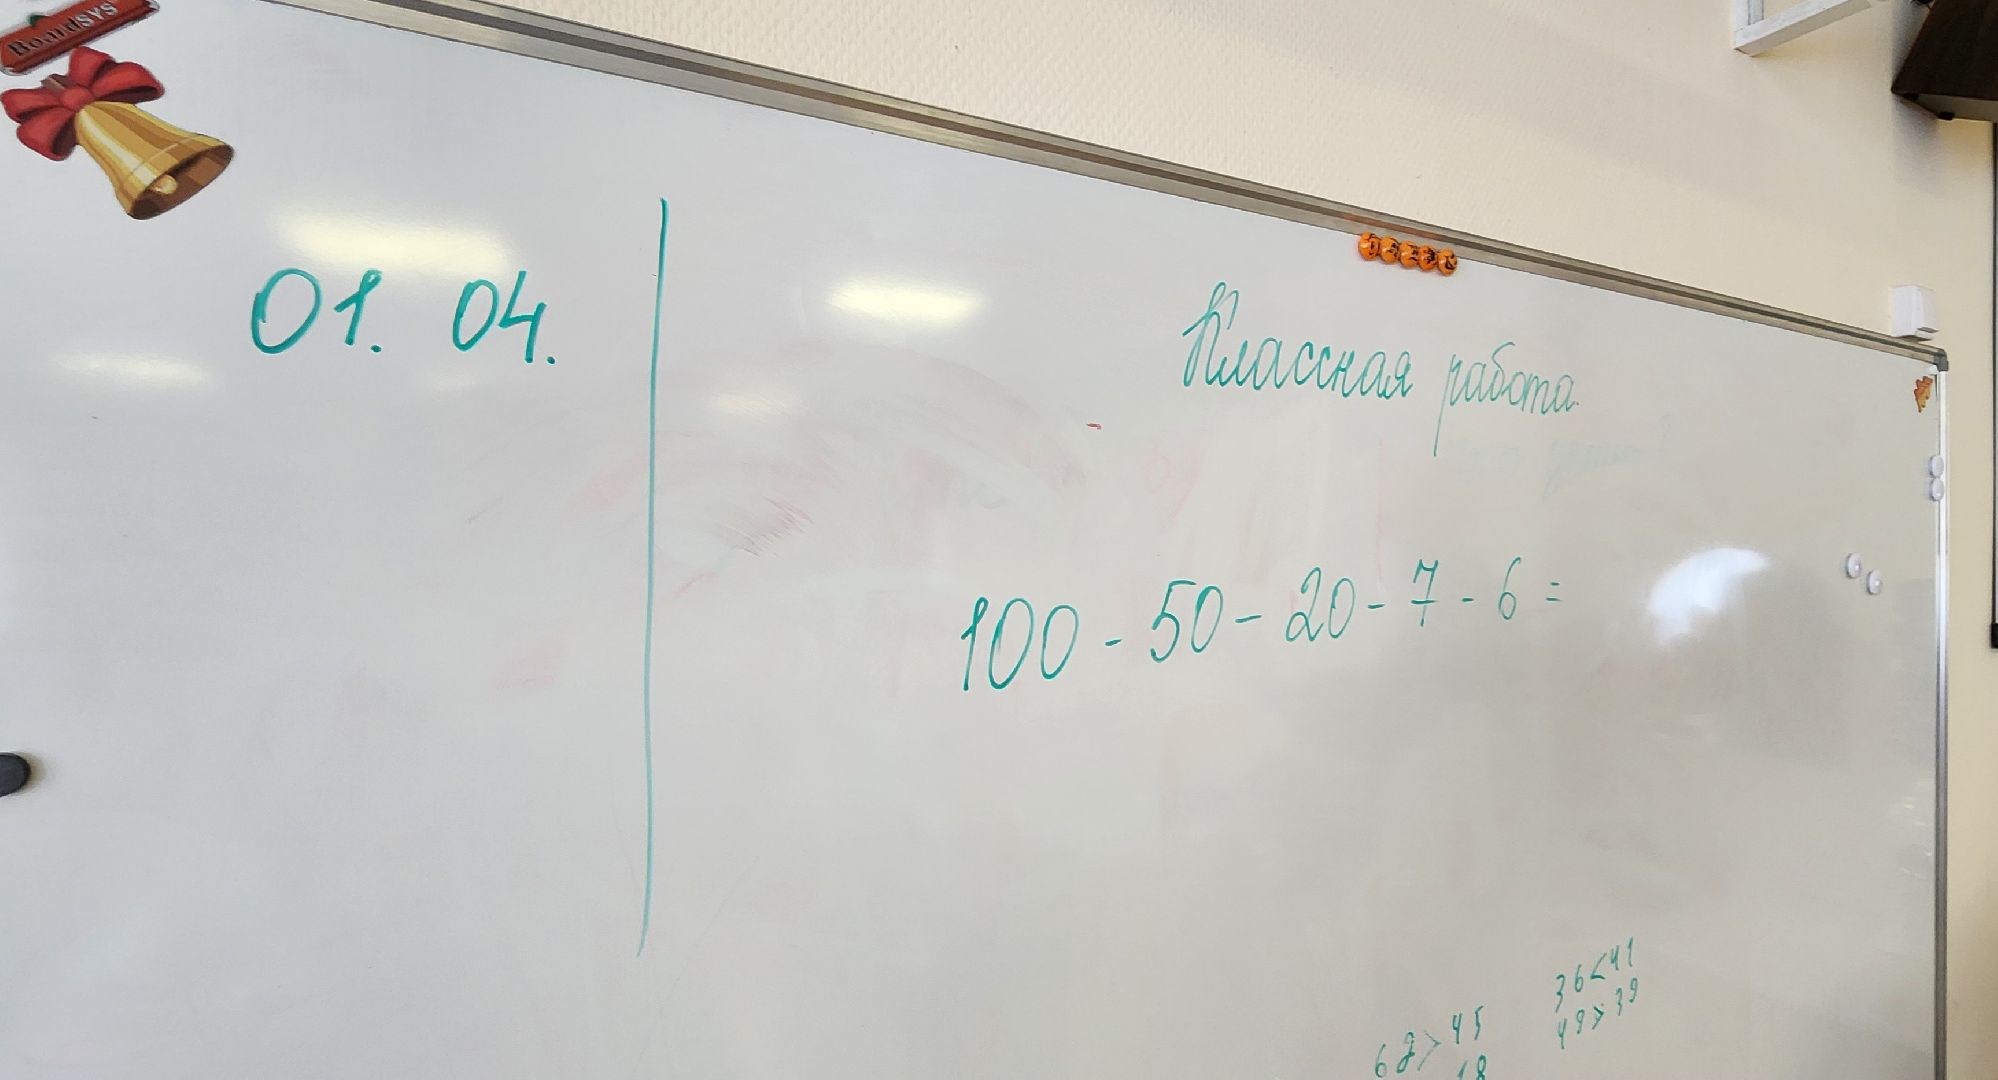 BoardSYS
01. 04.
Классная работа.
100 - 50 - 20 - 7 - 6 =
36 < 41
49 > 39
62 > 45
18